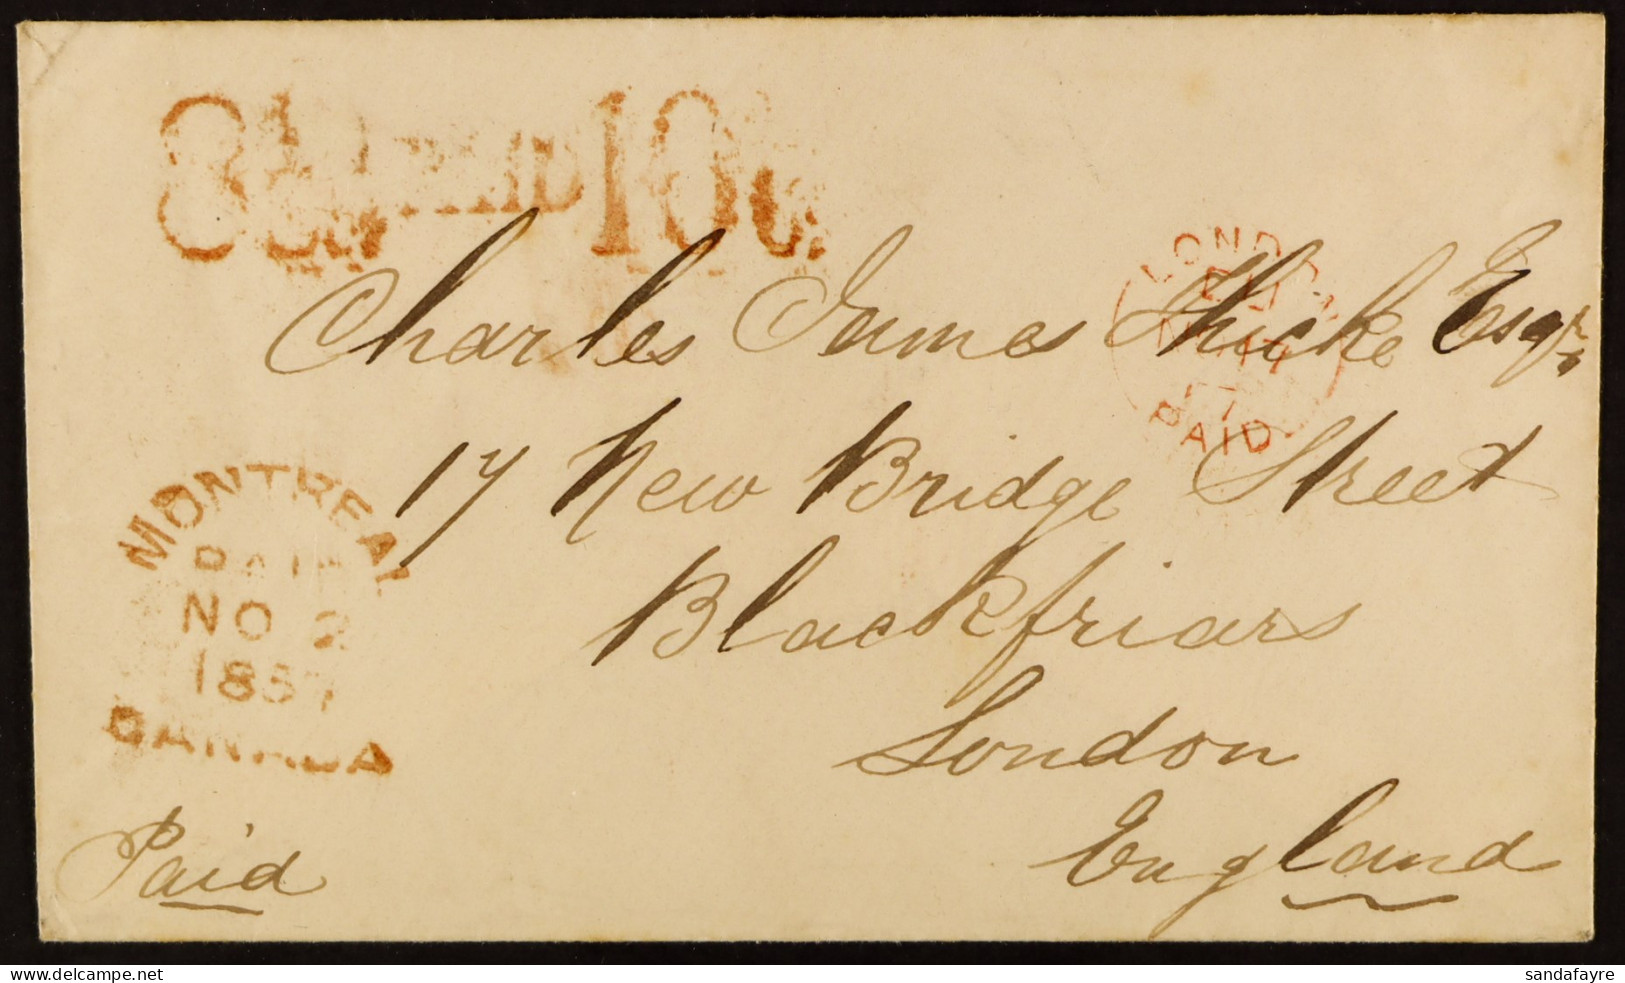 PAID 10
LONDON
PAID
Charles James Thicke Esqr.
17 New Bridge Street
Blackfriars
London
England
MONTREAL
PAID
NO 2
1857
CANADA
Paid
delcampe.net
sandafayre